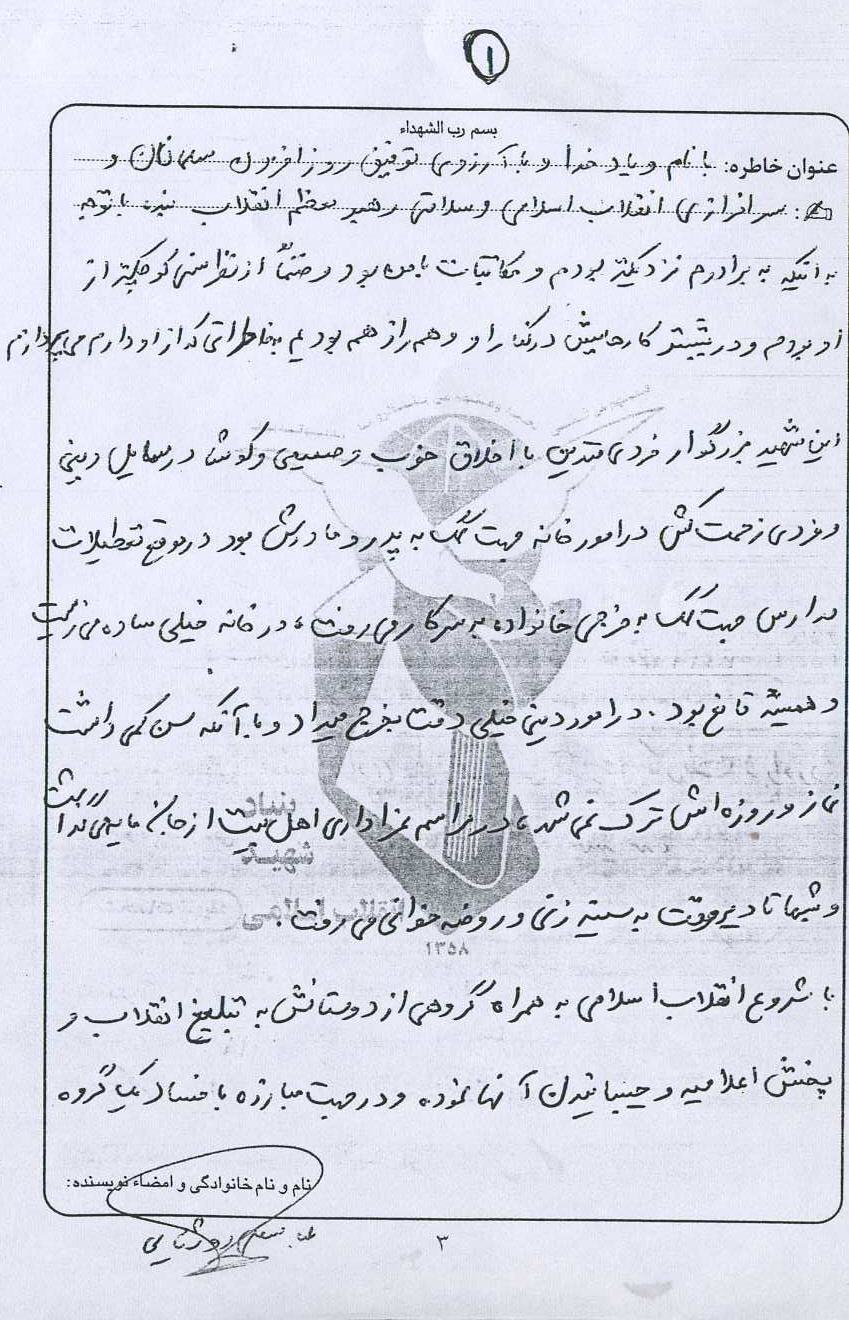 ۱
بسم رب الشهداء
عنوان خاطره: با نام و یاد خدا و با آرزوی توفیق روز افزون مسلمانان و
سرافرازی انقلاب اسلامی و سلامتی رهبر معظم انقلاب بنده با توجه
به اینکه به برادرم نزدیکتر بودم و مکاتبات با من بود و ضمناً از نظر سنی کوچکتر از
او بودم و در بیشتر کارهایش در کنار او و هم راز هم بودیم به خاطراتی که از او دارم می پردازم
این شهید بزرگوار فردی متدین با اخلاق خوب و صمیمی و کوشا در مسایل دینی
و فردی زحمت کش در امور خانه جهت کمک به پدر و مادرش بود در موقع تعطیلات
مدارس جهت کمک به خرجی خانواده به سر کار می رفت، در خانه خیلی ساده می زیست
و همیشه قانع بود. در امور دینی خیلی دقت بخرج میداد و با آنکه سن کمی داشت
نماز و روزه اش ترک نمی شد، در مراسم عزاداری اهل بیت از جان مایه می گذاشت
و شبها تا دیر وقت به سینه زنی و روضه خوانی می رفت.
بنیاد
شهید
انقلاب اسلامی
۱۳۵۸
با شروع انقلاب اسلامی به همراه گروهی از دوستانش به تبلیغ انقلاب و
پخش اعلامیه و چسپانیدن آنها نموده و در جهت مبارزه با فساد یک گروه
نام و نام خانوادگی و امضاء نویسنده:
۳